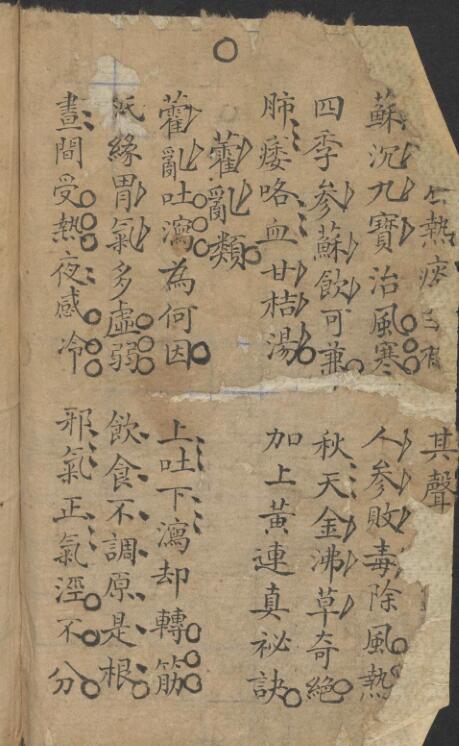 熱痰
其聲
蘇沉九寶治風寒
人參敗毒除風熱
四季參蘇飲可兼
秋天金沸草奇絕
肺痿咯血甘桔湯
加上黃連真祕訣
藿亂類
藿亂吐瀉為何因
上吐下瀉却轉筋
緣胃氣多虛弱
飲食不調原是根
晝間受熱夜感冷
邪氣正氣溼不分